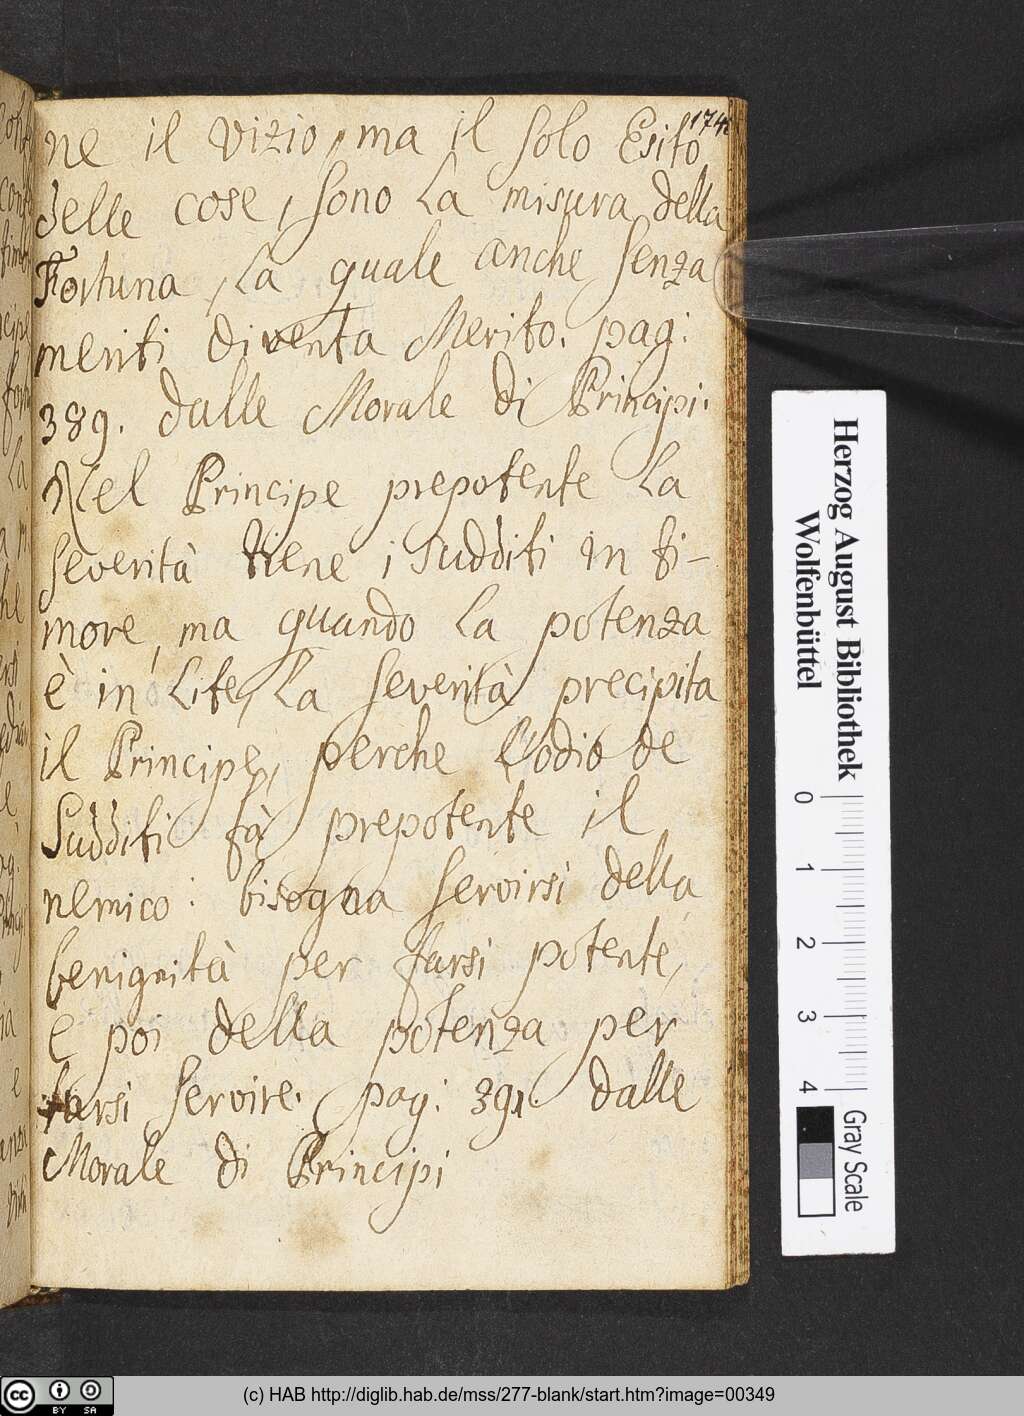 174
ne il vizio, ma il solo Esito
delle cose, sono La misura della
Fortuna, La quale anche senza
meriti diventa Merito. pag:
389. dalle Morale di Principi.
Nel Principe prepotente La
severità tiene i sudditi in ti-
more, ma quando La potenza
è in Lite, La severità precipita
il Principe, perche l'odio de
Sudditi fà prepotente il
nemico: bisogna servirsi della
benignità per farsi potente,
e poi della potenza per
farsi servire. pag: 391. dalle
Morale di Principi
Herzog August Bibliothek
Wolfenbüttel
0 1 2 3 4
Gray Scale
(c) HAB http://diglib.hab.de/mss/277-blank/start.htm?image=00349
cc BY SA